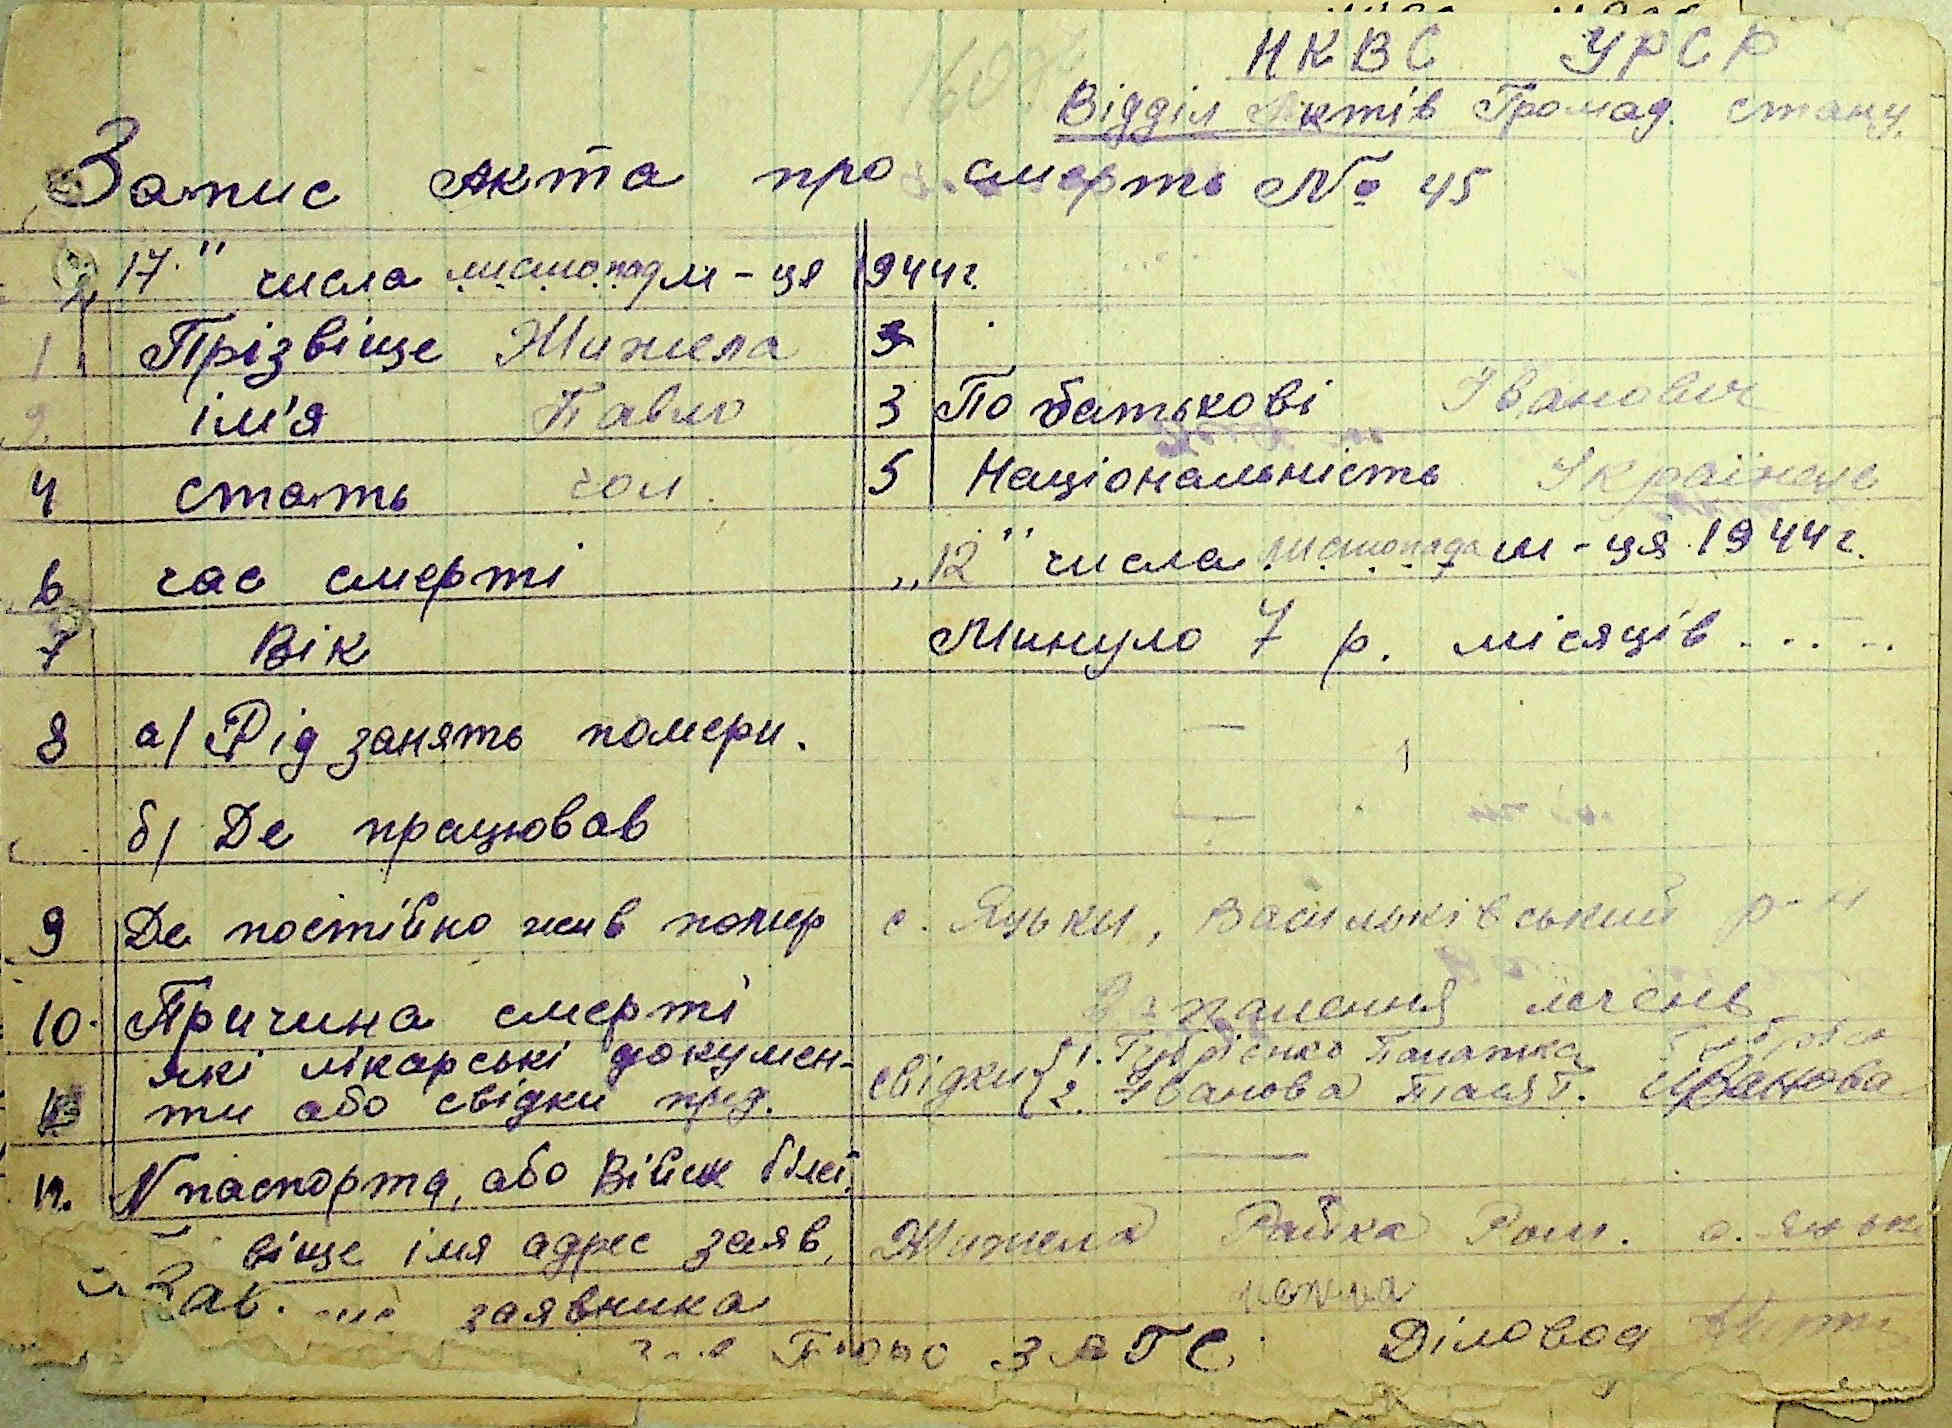 НКВС УРСР
Відділ Актів Громад. стану
Запис Акта про смерть № 45
17" числа листопад м-ця 1944г.
1 Прізвіще Жижела
2 ім'я Павло 3 По батькові Іванович
4 стать чол. 5 Національність Українець
6 час смерті „12" числа листопада м-ця 1944г.
7 Вік Минуло 7 р. місяців.....
8 а/ Рід занять помери. —
б/ Де працював —
9 Де постійно жив помер с. Яцьки, Васильківський р-н
10. Причина смерті взпалення легень
які лікарські докумен- свідки { 1. Губрієнко
ти або свідки пред. 2. Іванова Иванова
12. N паспорта, або Війск білєт. —
віще імя адрес заяв. Жижела Райка Ром. с.
заявника
ЗАГС Діловод